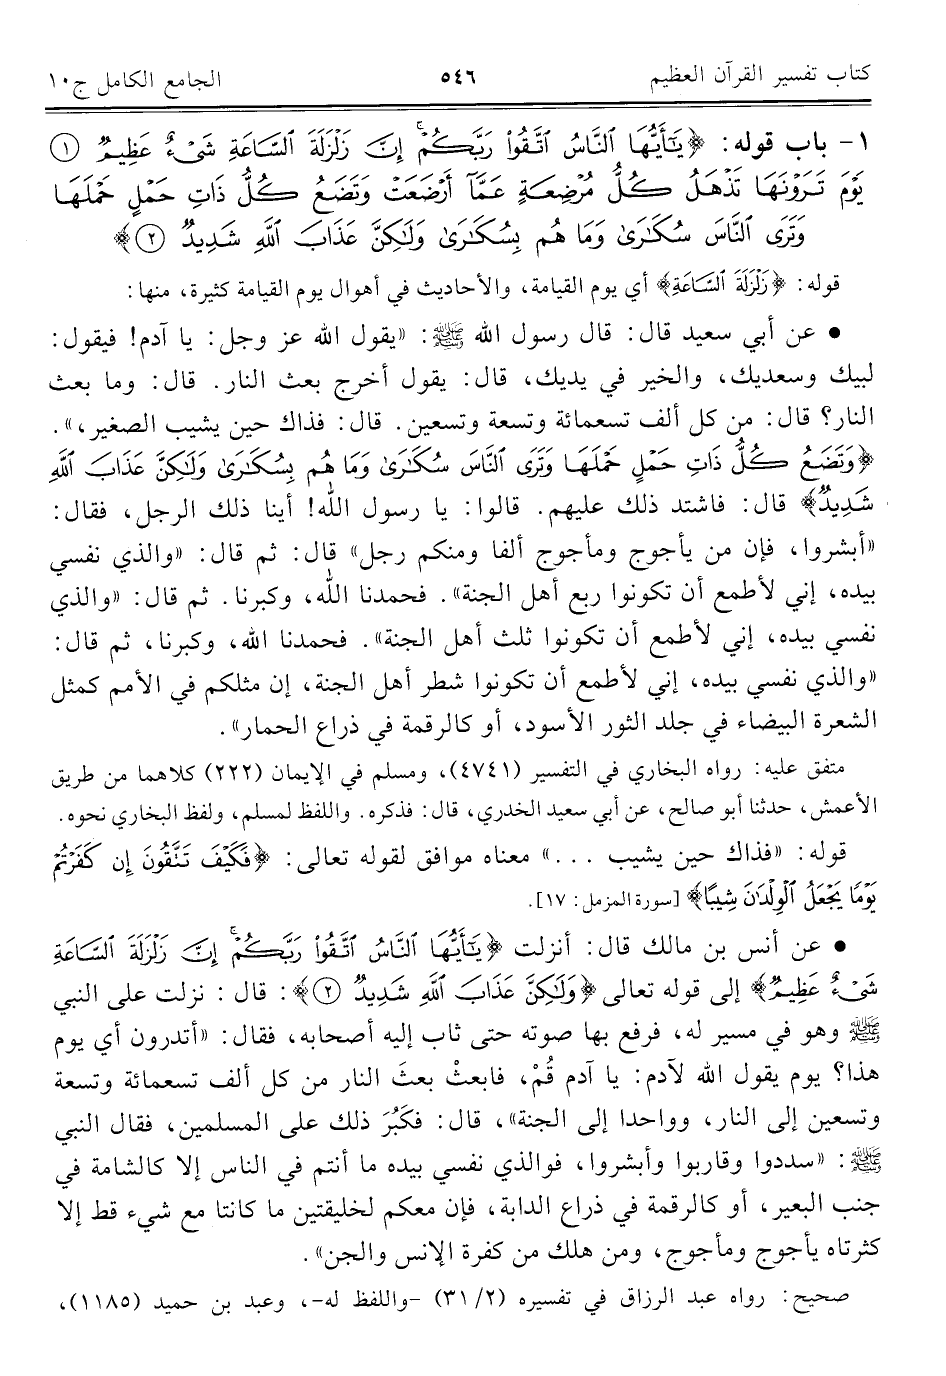 كتاب تفسير القرآن العظيم ٥٤٦ الجامع الكامل ج١٠
١- باب قوله: ﴿يَٰٓأَيُّهَا ٱلنَّاسُ ٱتَّقُوا۟ رَبَّكُمْ ۚ إِنَّ زَلْزَلَةَ ٱلسَّاعَةِ شَىْءٌ عَظِيمٌ ١
يَوْمَ تَرَوْنَهَا تَذْهَلُ كُلُّ مُرْضِعَةٍ عَمَّآ أَرْضَعَتْ وَتَضَعُ كُلُّ ذَاتِ حَمْلٍ حَمْلَهَا
وَتَرَى ٱلنَّاسَ سُكَٰرَىٰ وَمَا هُم بِسُكَٰرَىٰ وَلَٰكِنَّ عَذَابَ ٱللَّهِ شَدِيدٌ ٢﴾
قوله: ﴿زَلْزَلَةَ ٱلسَّاعَةِ﴾ أي يوم القيامة، والأحاديث في أهوال يوم القيامة كثيرة، منها:
• عن أبي سعيد قال: قال رسول الله ﷺ: «يقول الله عز وجل: يا آدم! فيقول:
لبيك وسعديك، والخير في يديك، قال: يقول أخرج بعث النار. قال: وما بعث
النار؟ قال: من كل ألف تسعمائة وتسعة وتسعين. قال: فذاك حين يشيب الصغير،».
﴿وَتَضَعُ كُلُّ ذَاتِ حَمْلٍ حَمْلَهَا وَتَرَى ٱلنَّاسَ سُكَٰرَىٰ وَمَا هُم بِسُكَٰرَىٰ وَلَٰكِنَّ عَذَابَ ٱللَّهِ
شَدِيدٌ﴾ قال: فاشتد ذلك عليهم. قالوا: يا رسول الله! أينا ذلك الرجل، فقال:
«أبشروا، فإن من يأجوج ومأجوج ألفا ومنكم رجل» قال: ثم قال: «والذي نفسي
بيده، إني لأطمع أن تكونوا ربع أهل الجنة». فحمدنا الله، وكبرنا. ثم قال: «والذي
نفسي بيده، إني لأطمع أن تكونوا ثلث أهل الجنة». فحمدنا الله، وكبرنا، ثم قال:
«والذي نفسي بيده، إني لأطمع أن تكونوا شطر أهل الجنة، إن مثلكم في الأمم كمثل
الشعرة البيضاء في جلد الثور الأسود، أو كالرقمة في ذراع الحمار».
متفق عليه: رواه البخاري في التفسير (٤٧٤١)، ومسلم في الإيمان (٢٢٢) كلاهما من طريق
الأعمش، حدثنا أبو صالح، عن أبي سعيد الخدري، قال: فذكره. واللفظ لمسلم، ولفظ البخاري نحوه.
قوله: «فذاك حين يشيب ...» معناه موافق لقوله تعالى: ﴿فَكَيْفَ تَتَّقُونَ إِن كَفَرْتُمْ
يَوْمًا يَجْعَلُ ٱلْوِلْدَٰنَ شِيبًا﴾ [سورة المزمل: ١٧].
• عن أنس بن مالك قال: أنزلت ﴿يَٰٓأَيُّهَا ٱلنَّاسُ ٱتَّقُوا۟ رَبَّكُمْ ۚ إِنَّ زَلْزَلَةَ ٱلسَّاعَةِ
شَىْءٌ عَظِيمٌ﴾ إلى قوله تعالى ﴿وَلَٰكِنَّ عَذَابَ ٱللَّهِ شَدِيدٌ ٢﴾: قال: نزلت على النبي
ﷺ وهو في مسير له، فرفع بها صوته حتى ثاب إليه أصحابه، فقال: «أتدرون أي يوم
هذا؟ يوم يقول الله لآدم: يا آدم قُمْ، فابعثْ بعثَ النار من كل ألف تسعمائة وتسعة
وتسعين إلى النار، وواحدا إلى الجنة»، قال: فكَبُرَ ذلك على المسلمين، فقال النبي
ﷺ: «سددوا وقاربوا وأبشروا، فوالذي نفسي بيده ما أنتم في الناس إلا كالشامة في
جنب البعير، أو كالرقمة في ذراع الدابة، فإن معكم لخليقتين ما كانتا مع شيء قط إلا
كثرتاه يأجوج ومأجوج، ومن هلك من كفرة الإنس والجن».
صحيح: رواه عبد الرزاق في تفسيره (٣١/٢) -واللفظ له-، وعبد بن حميد (١١٨٥)،